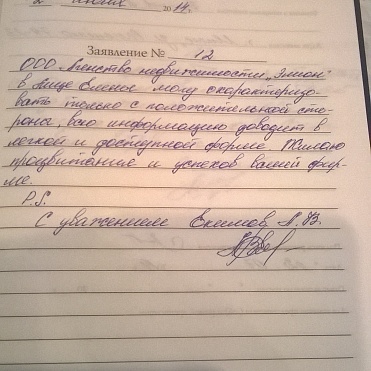 2 июля 2014 г.
Заявление № 12
ООО Агенство недвижимости „Элион"
в лице Елены могу охарактеризо-
вать только с положительной сто-
роны, всю информацию доводит в
легкой и доступной форме. Желаю
процветания и успехов вашей фир-
ме.
P.S.
С уважением Екимов А. В.